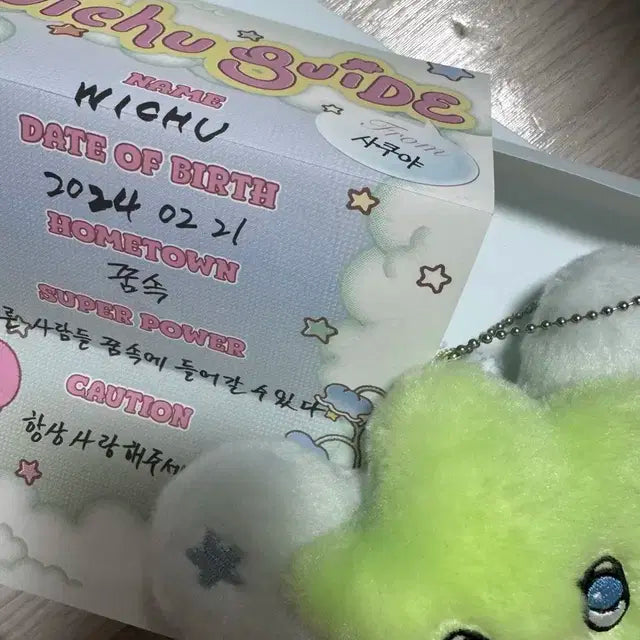 Wichu GUIDE
From
사쿠야
NAME
WICHU
DATE OF BIRTH
2024 02 21
HOMETOWN
꿈속
SUPER POWER
사람들 꿈속에 들어갈 수 있다
CAUTION
항상 사랑해주세